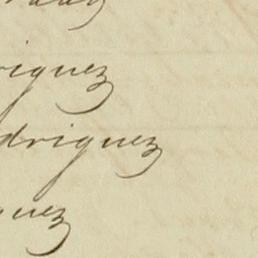 riguez
driguez
guez